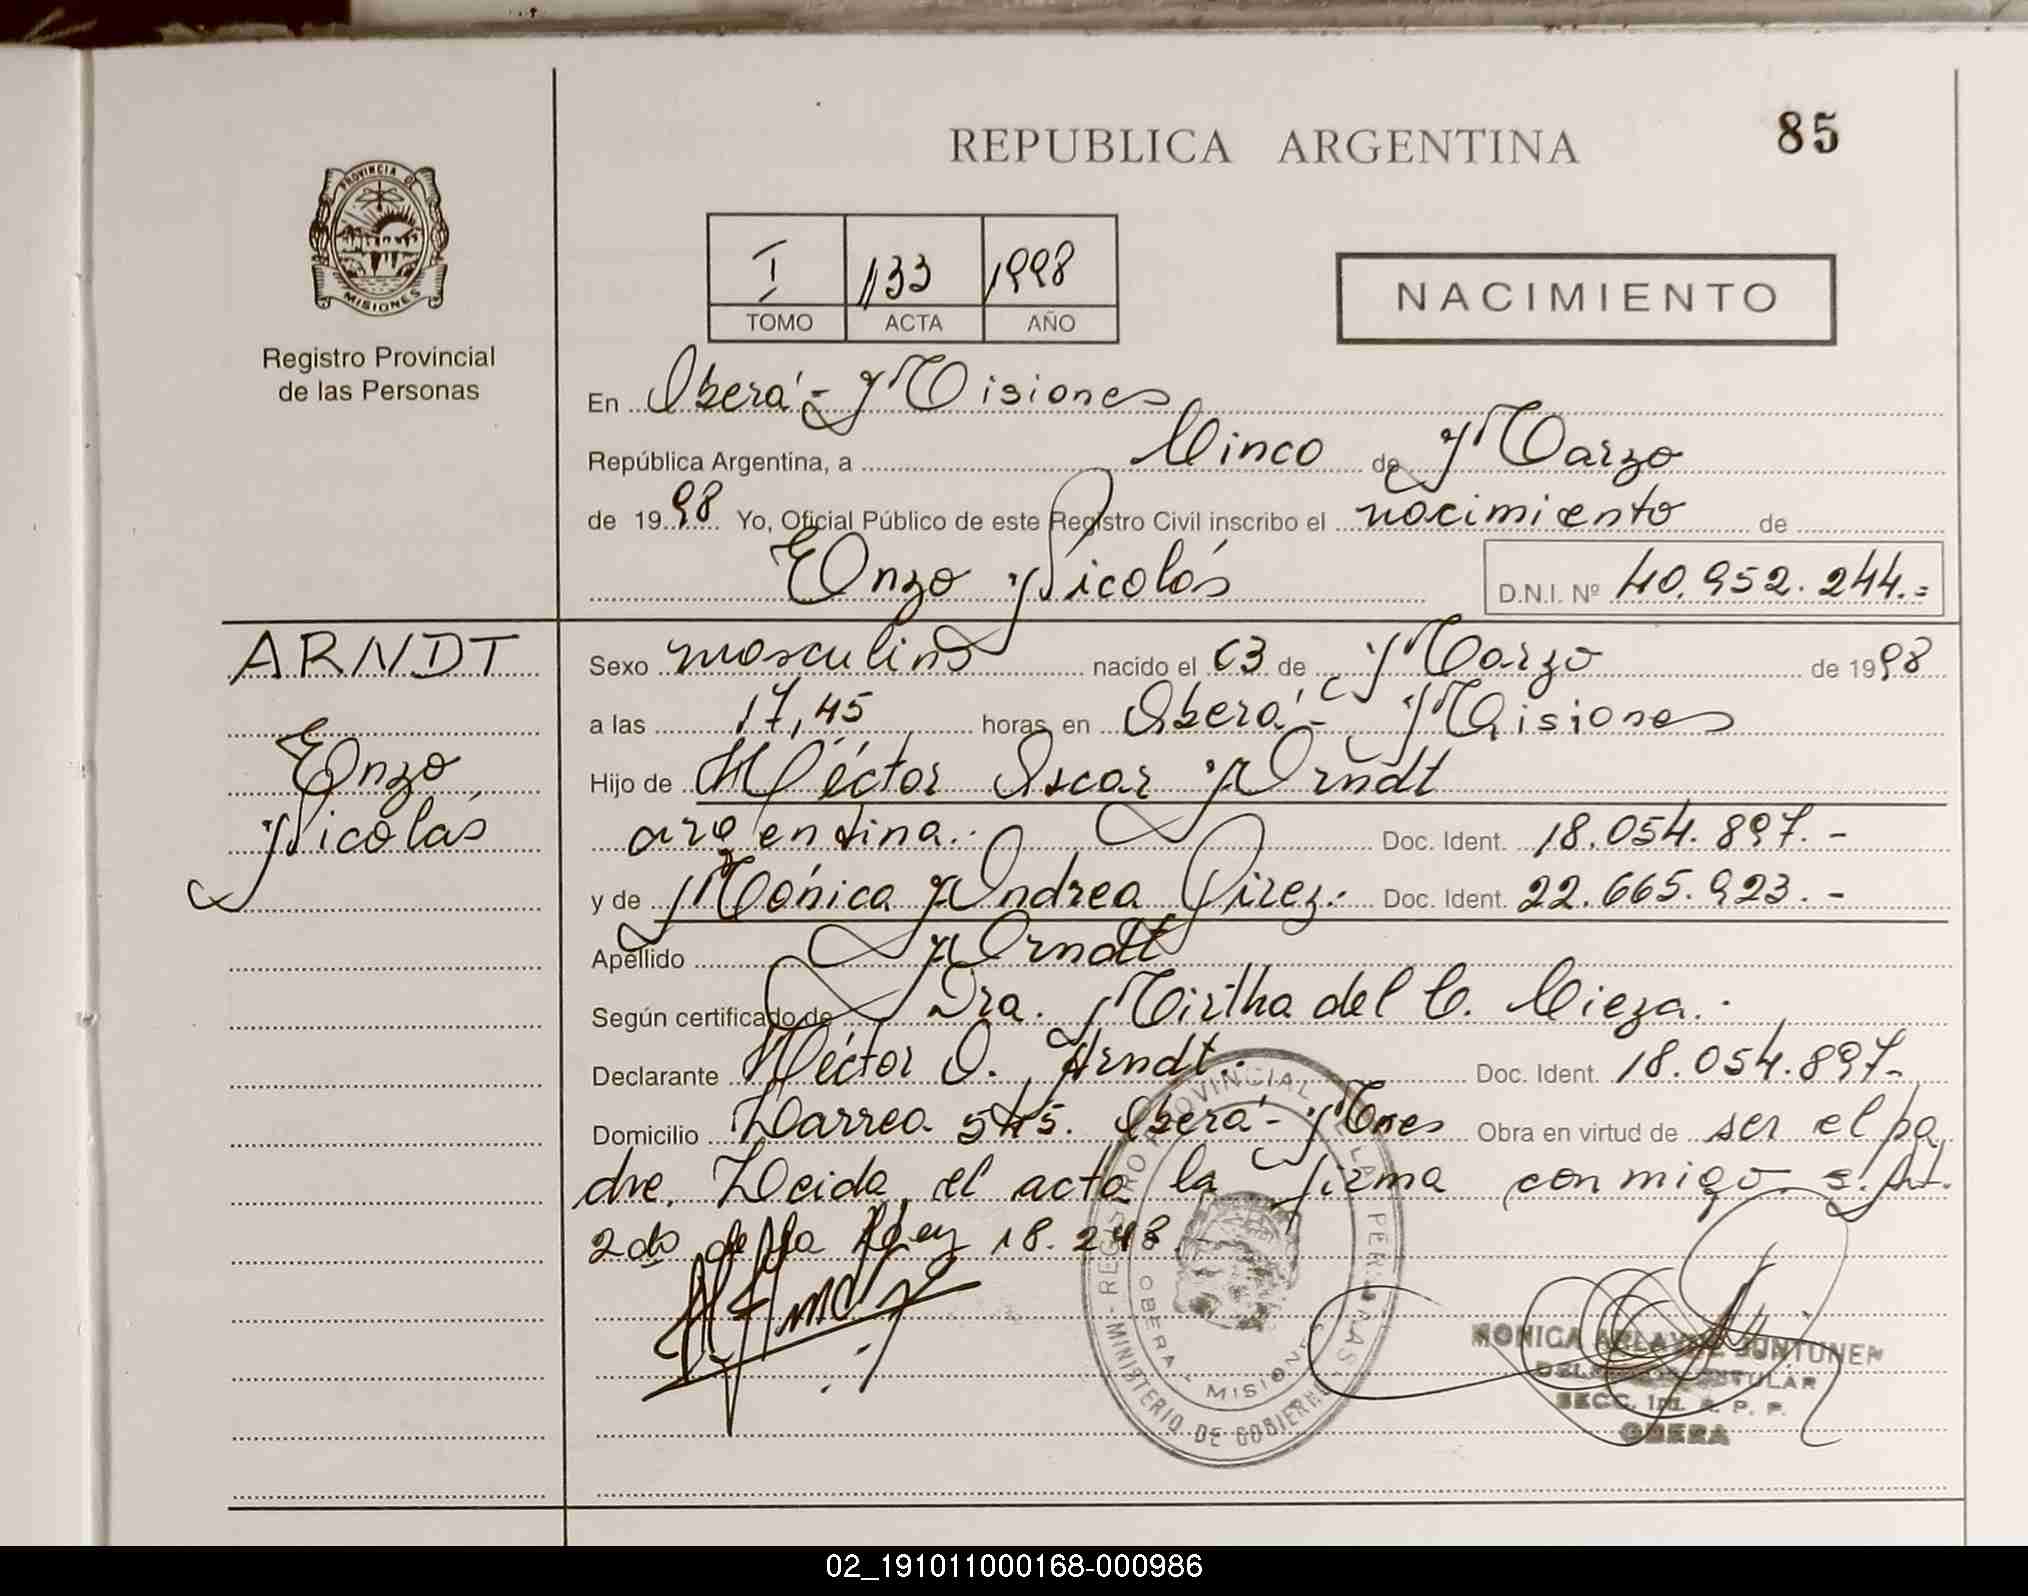 REPUBLICA ARGENTINA
85
PROVINCIA DE
MISIONES
Registro Provincial
de las Personas
I 133 1998
TOMO ACTA AÑO
NACIMIENTO
En Oberá - Misiones
República Argentina, a Cinco de Marzo
de 1998 Yo, Oficial Público de este Registro Civil inscribo el nacimiento de
Enzo Nicolás D.N.I. Nº 40.952.244.=
ARNDT
Enzo
Nicolás
Sexo masculino nacido el 03 de Marzo de 1998
a las 17,45 horas en Oberá - Misiones
Hijo de Héctor Oscar Arndt
argentina.- Doc. Ident. 18.054.897.-
y de Mónica Andrea Pirez.- Doc. Ident. 22.665.923.-
Apellido Arndt
Según certificado de Dra. Mirtha del C. Cieza.-
Declarante Héctor O. Arndt.- Doc. Ident. 18.054.897-
Domicilio Larrea 545. Oberá - Mnes Obra en virtud de ser el pa
dre. Leida el acta la firma conmigo s. Art.
2do de la Ley 18.248.
REGISTRO PROVINCIAL DE LAS PERSONAS
MINISTERIO DE GOBIERNO
OBERA - MISIONES
MONICA JUNTUNEN
TITULAR
SECC. R. P. P.
OBERA
02_191011000168-000986